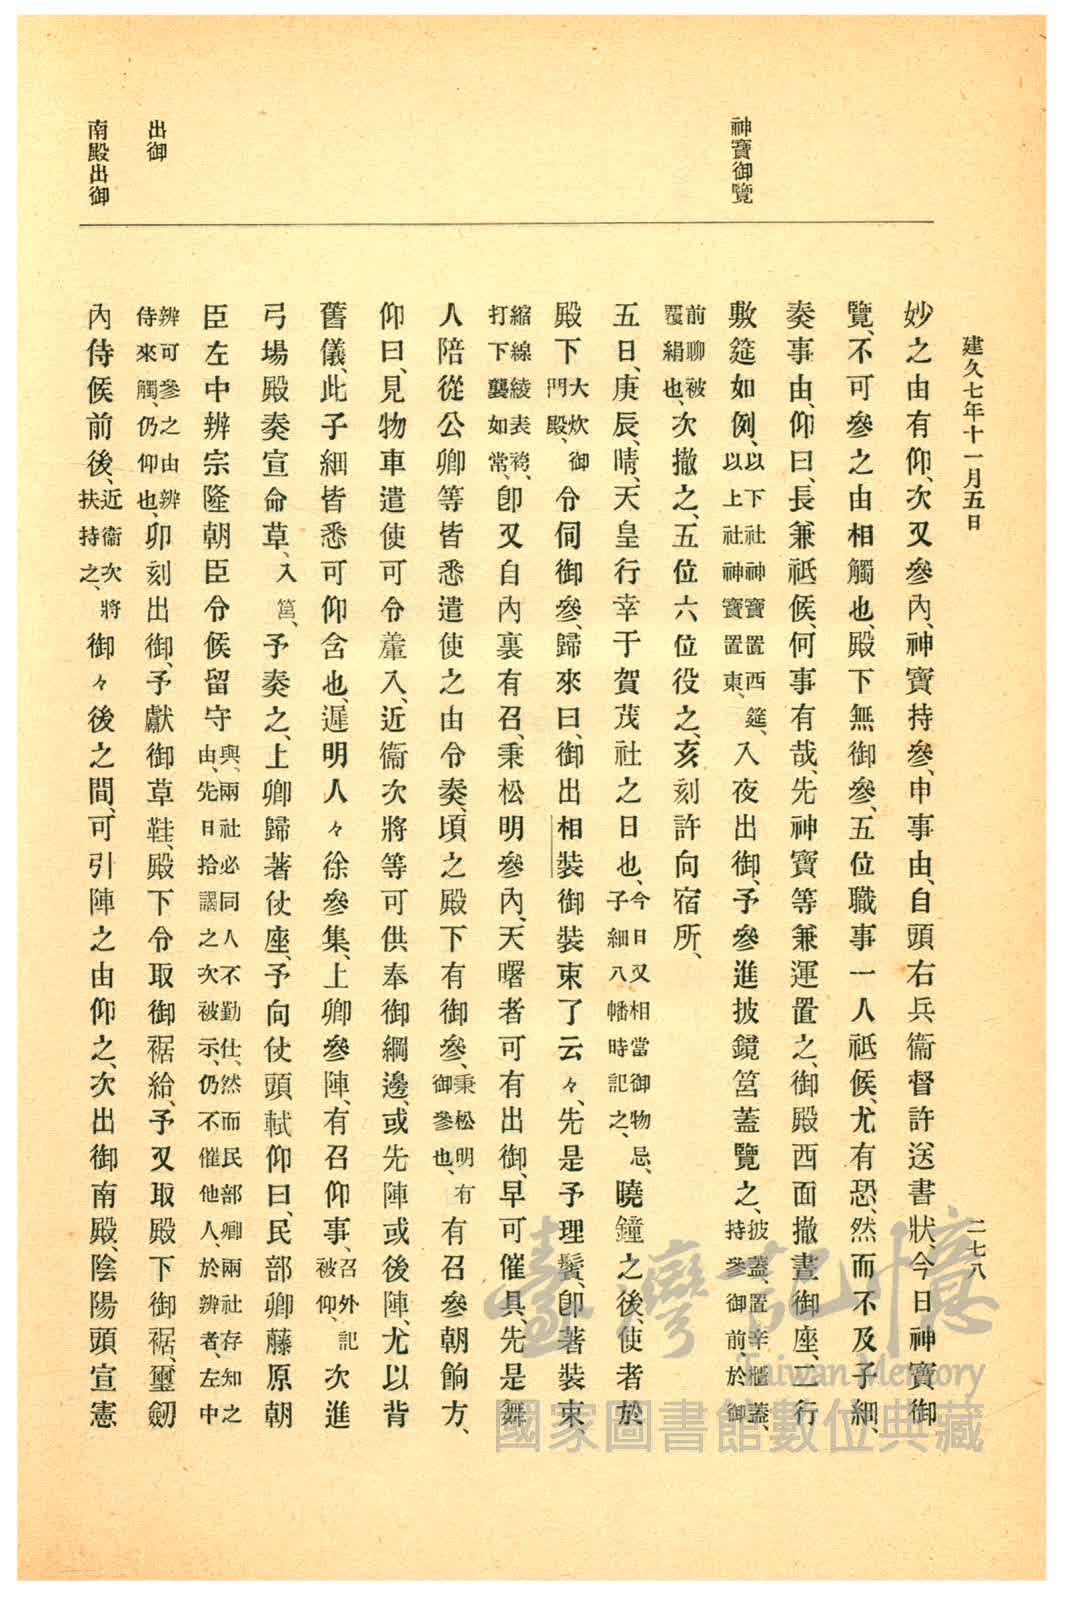 建久七年十一月五日
二七八
神寶御覽
出御
南殿出御
妙之由有仰、次又參內、神寶持參、申事由、自頭右兵衞督許送書狀、今日神寶御
覽、不可參之由相觸也、殿下無御參、五位職事一人祗候、尤有恐、然而不及子細、
奏事由、仰曰、長兼祗候、何事有哉、先神寶等兼運置之、御殿西面撤晝御座、二行
敷筵如例、以下社神寶置西筵、以上社神寶置東、入夜出御、予參進披鏡筥蓋覽之、披蓋、置辛櫃蓋、持參御前、於御
前聊被覆絹也、次撤之、五位六位役之、亥刻許向宿所、
五日、庚辰、晴、天皇行幸于賀茂社之日也、今日又相當御物忌、子細八幡時記之、曉鐘之後、使者於
殿下大炊御門殿、令伺御參、歸來曰、御出相裝御裝束了云々、先是予理鬢、卽著裝束、
縮線綾表袴、打下襲如常、卽又自內裏有召、秉松明參內、天曙者可有出御、早可催具、先是舞
人陪從公卿等皆悉遣使之由令奏、頃之殿下有御參、秉松明有御參也、有召參朝餉方、
仰曰、見物車遣使可令輦入、近衞次將等可供奉御綱邊、或先陣或後陣、尤以背
舊儀、此子細皆悉可仰含也、遲明人々徐參集、上卿參陣、有召仰事、召外記被仰、次進
弓場殿奏宣命草、入筥、予奏之、上卿歸著仗座、予向仗頭軾仰曰、民部卿藤原朝
臣左中辨宗隆朝臣令候留守與、兩社必同人不勤仕、然而民部卿兩社存知之由、先日拾謁之次被示、仍不催他人、於辨者、左中
辨可參之由辨侍來觸、仍仰也、卯刻出御、予獻御草鞋、殿下令取御裾給、予又取殿下御裾、璽劒
內侍候前後、近衞次將扶持之、御々後之間、可引陣之由仰之、次出御南殿、陰陽頭宣憲
臺灣記憶
Taiwan Memory
國家圖書館數位典藏